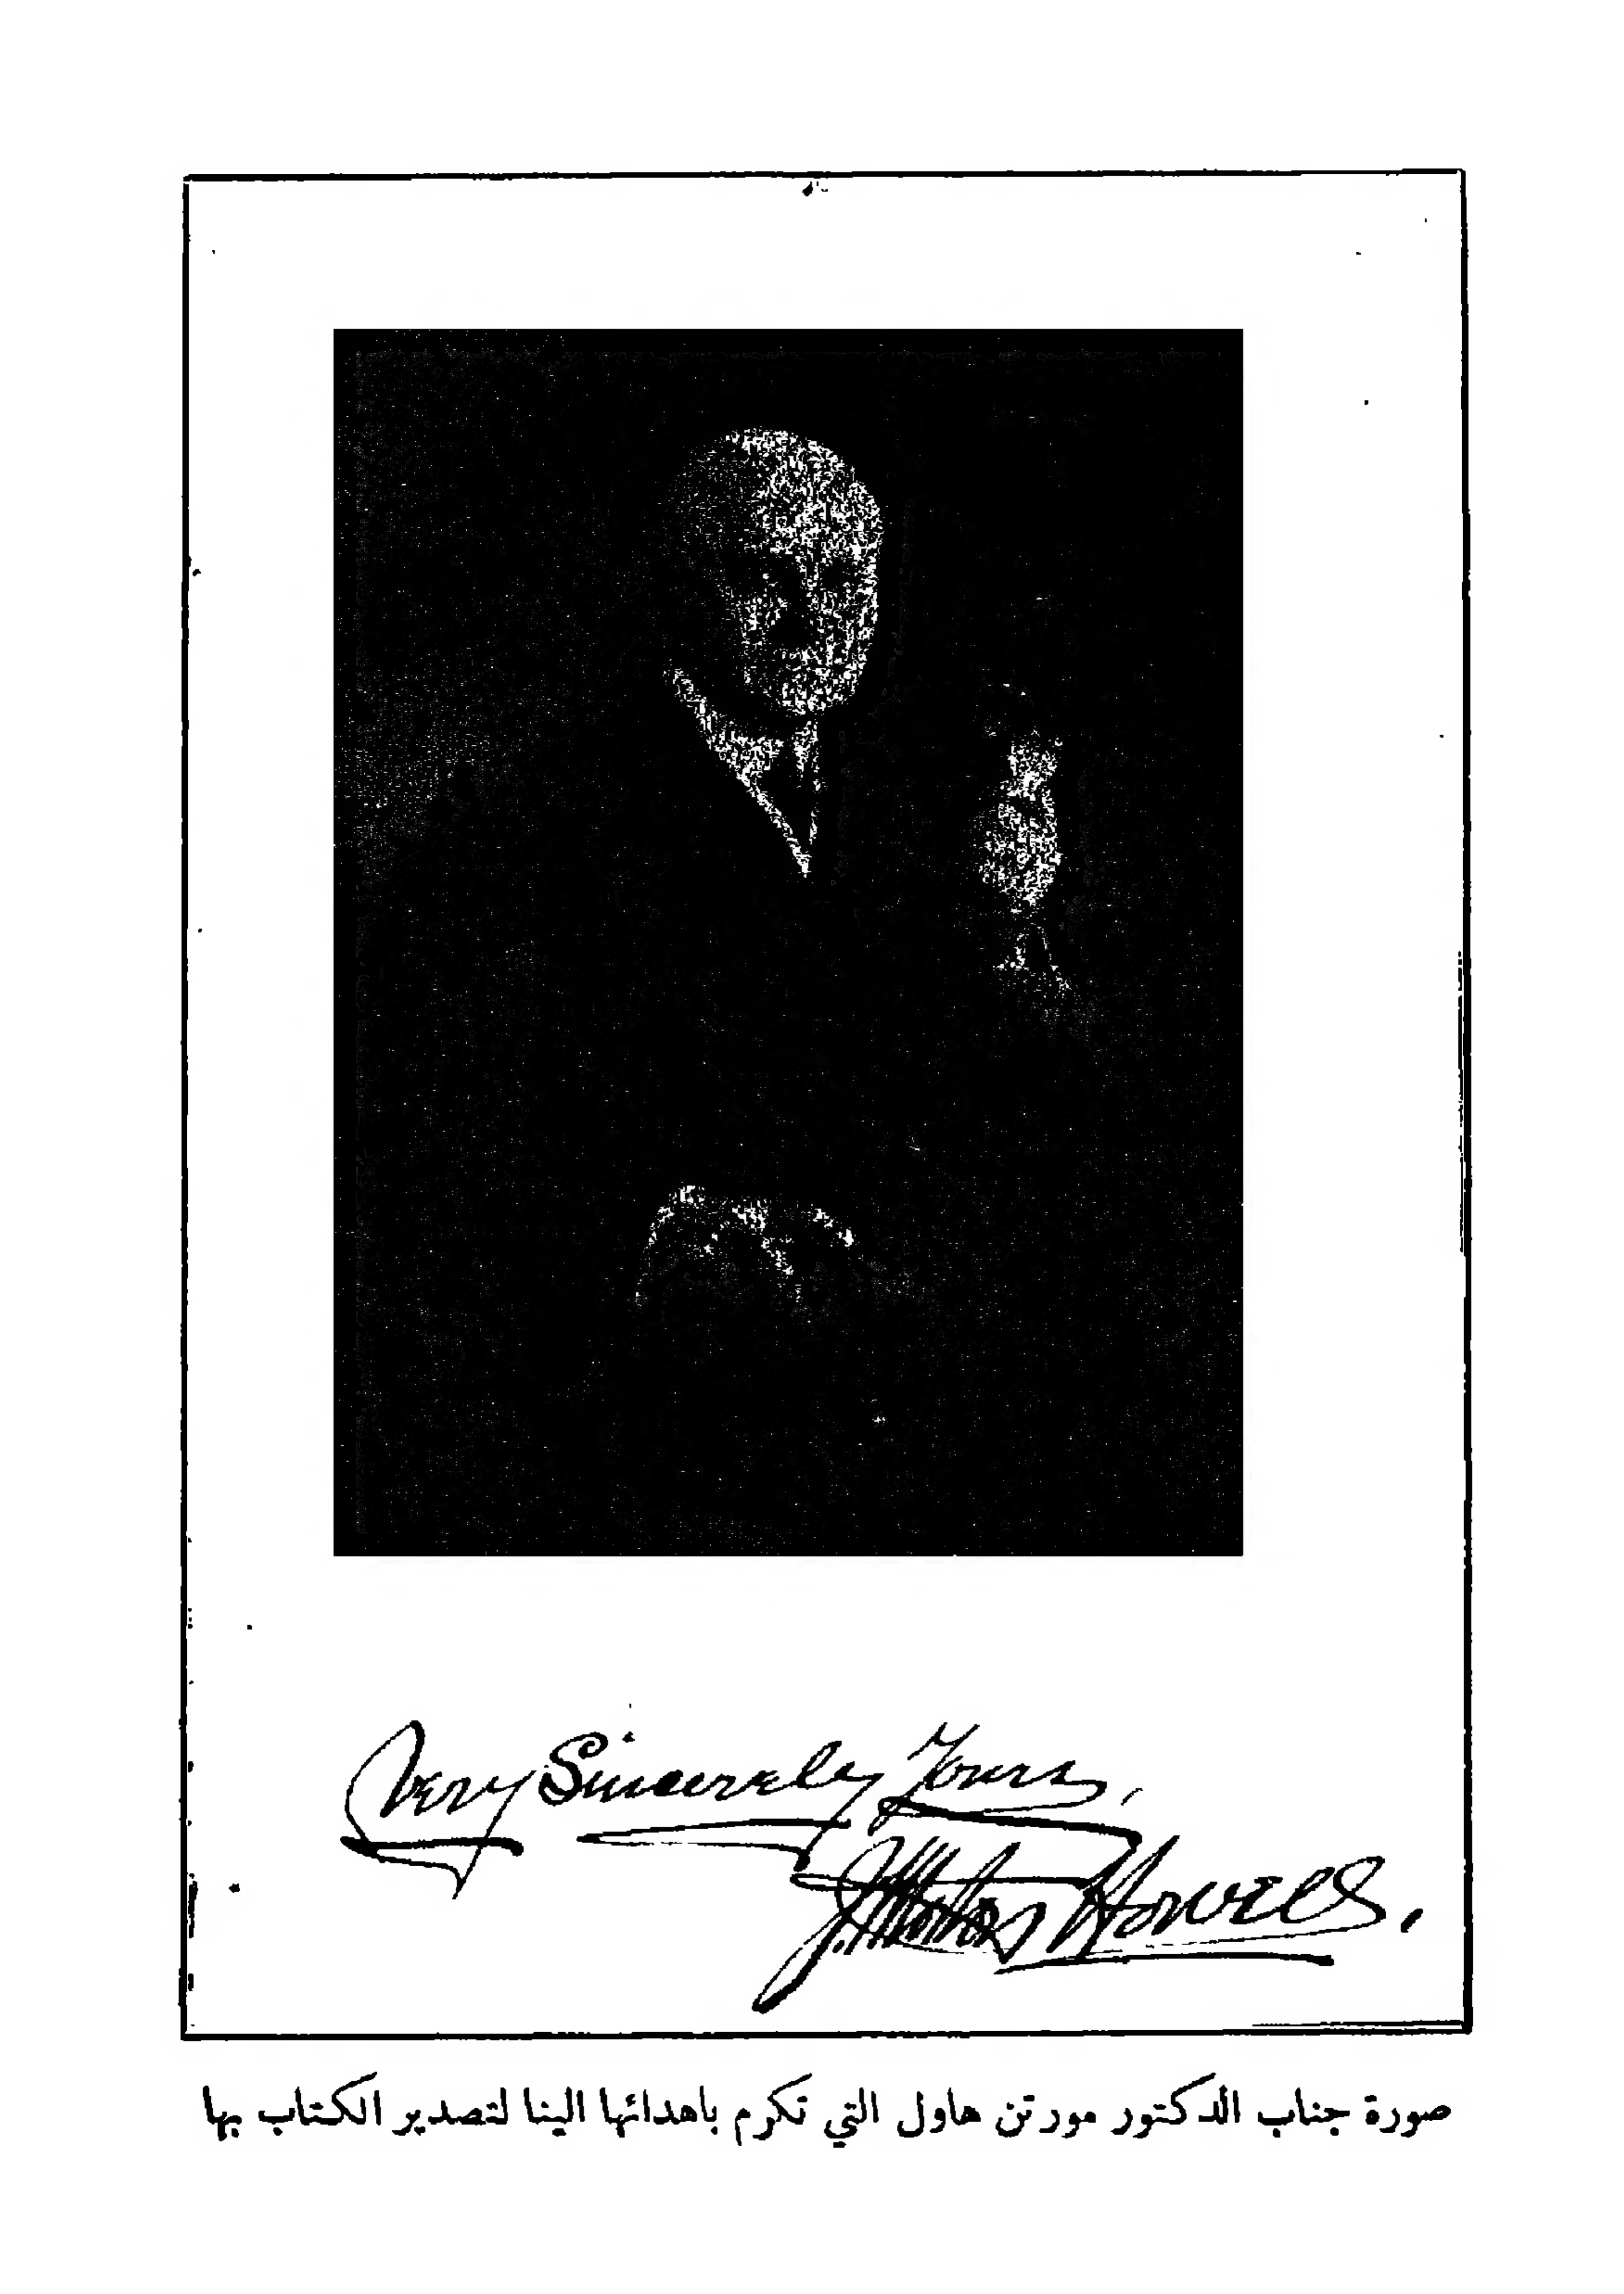 Very Sincerely Yours,
J. Morton Howell.
صورة جناب الدكتور مورتن هاول التي تكرم باهدائها الينا لتصدير الكتاب بها